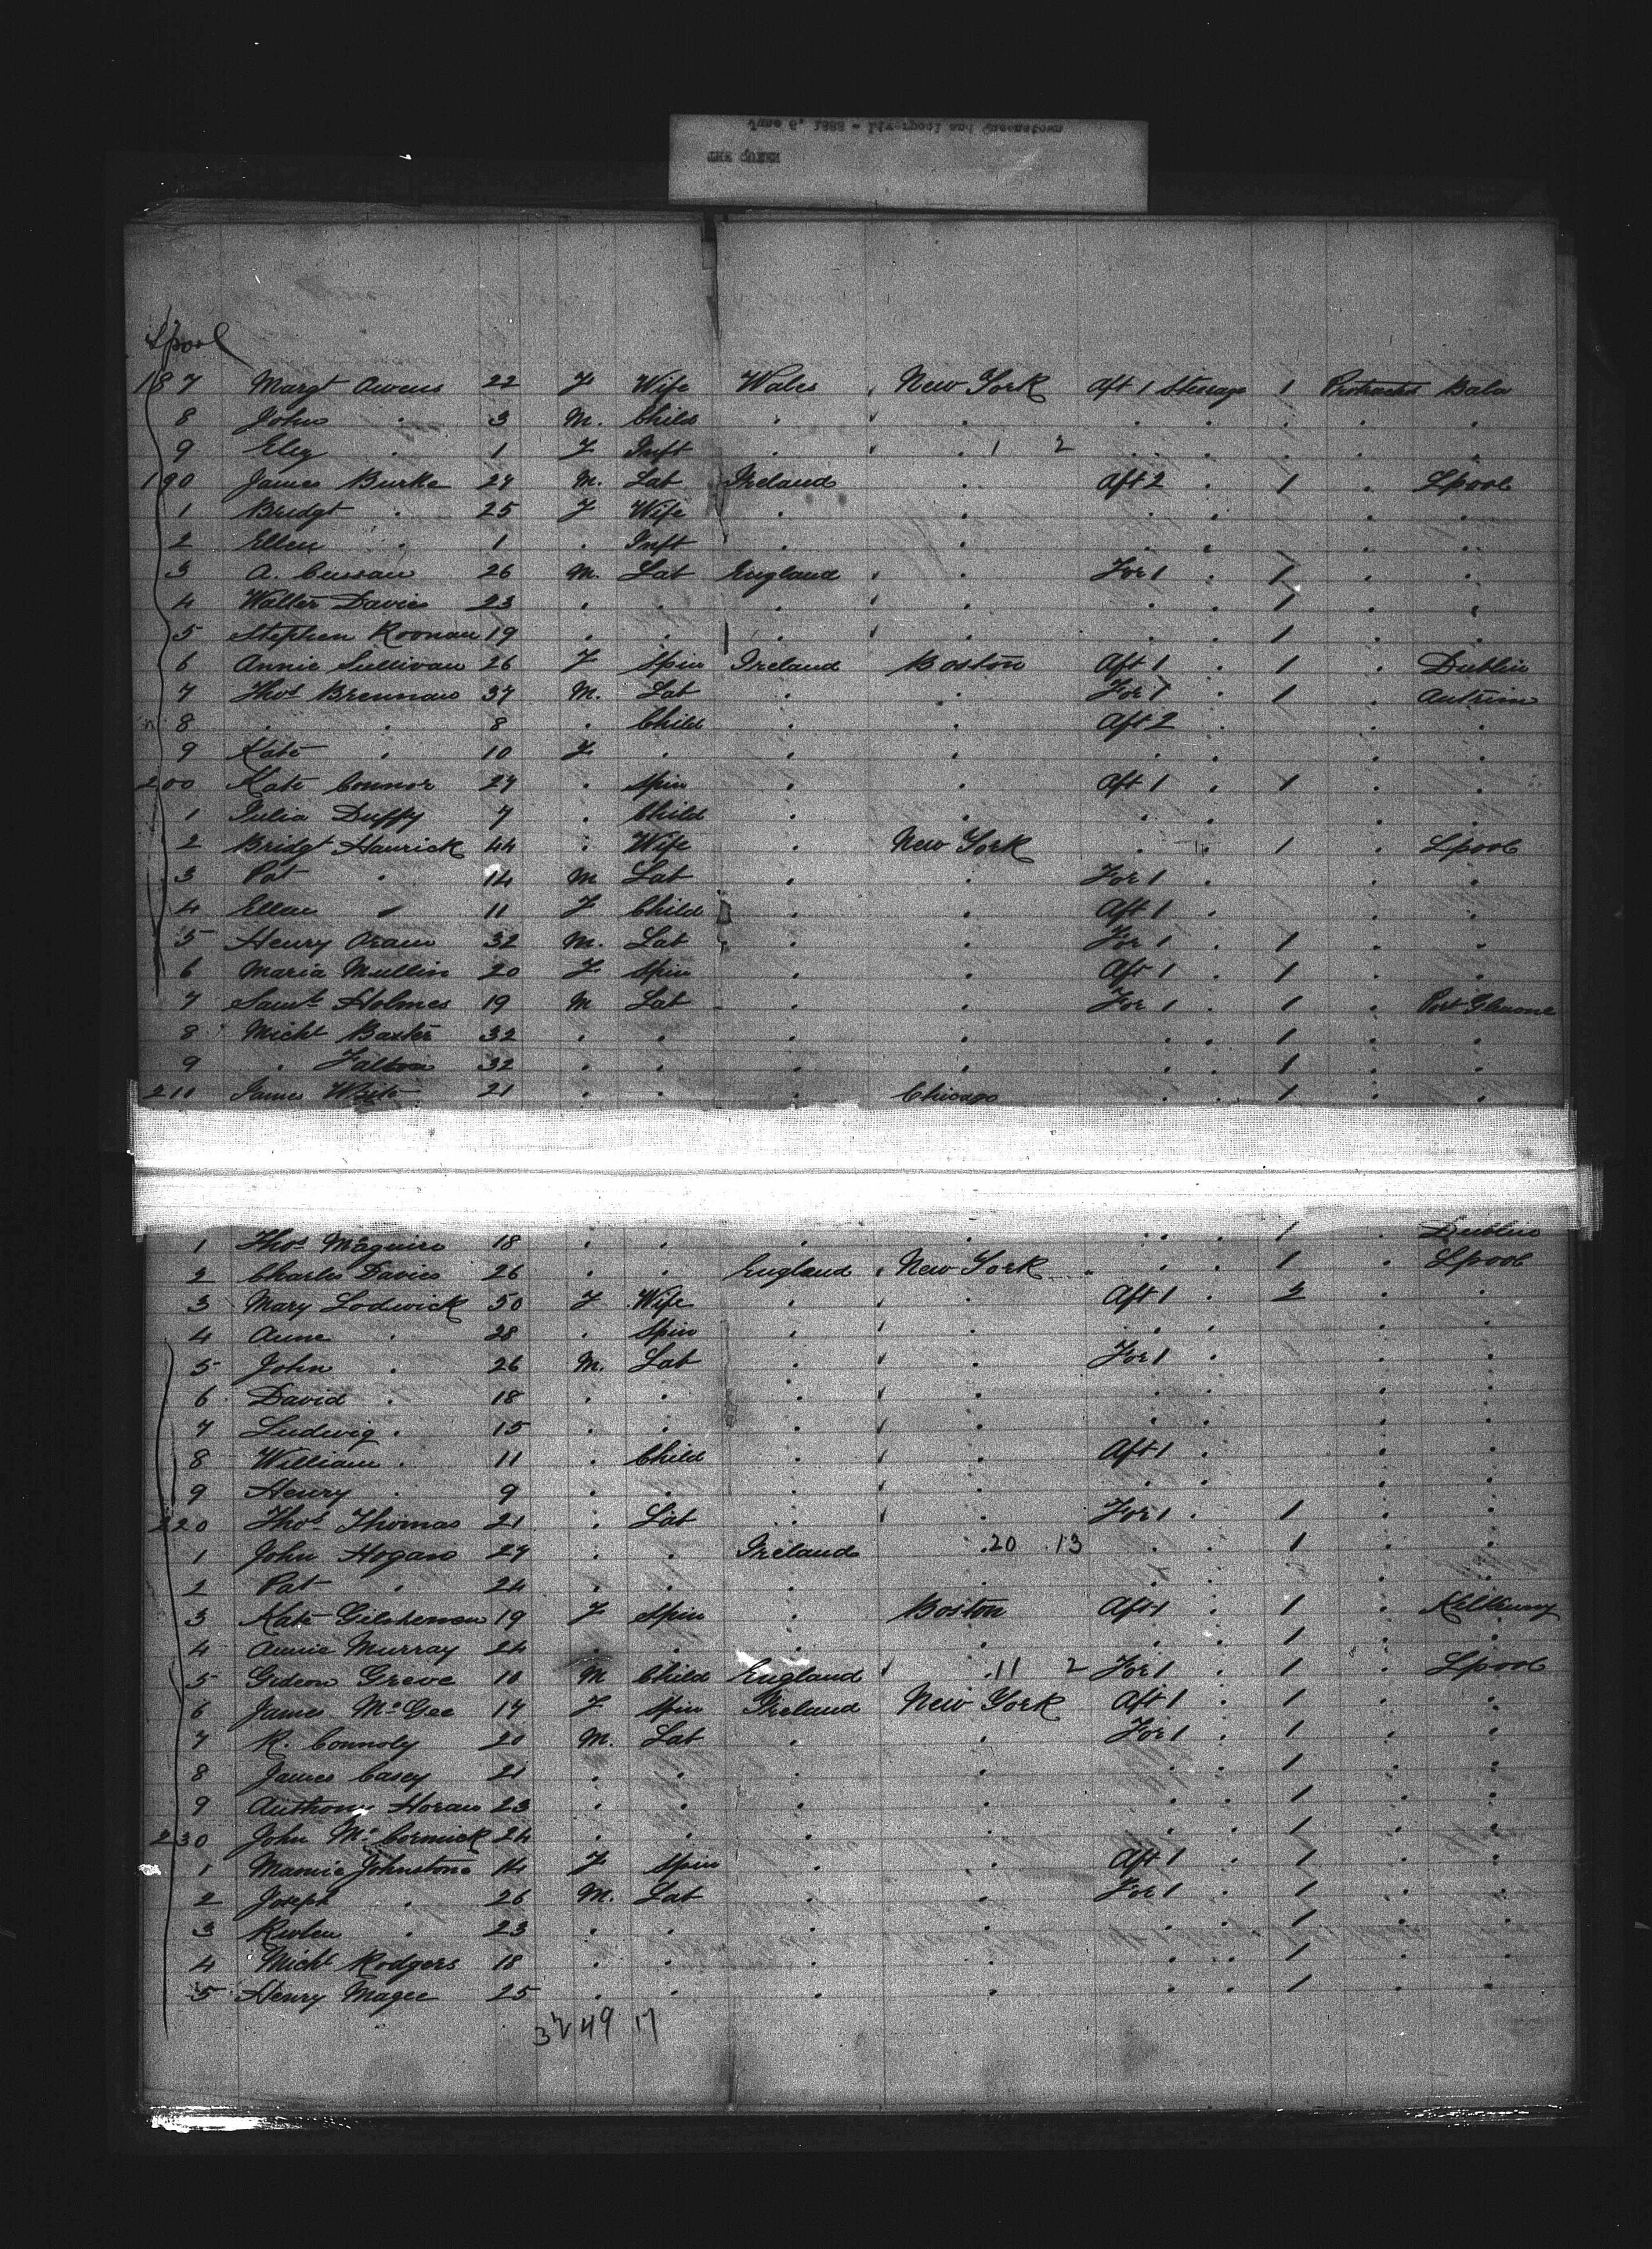 June 6, 1888 - Liverpool and Queenstown
THE QUEEN
Lpool
187 Margt Owens 22 F Wife Wales New York Aft 1 Steerage 1 Protracted Bala
8 John " 3 M. Child " " " " " "
9 " 1 F Inft " " 1 2 " " " "
190 James Burke 27 M. Lab Ireland " Aft 2 " 1 " Lpool
1 Bridgt " 25 F Wife " " " " "
2 Ellen " 1 " Inft " " " " "
3 A. 26 M. Lab England " For 1 " 1 " "
4 Walter Davies 23 " " " " " " 1 " "
5 Stephen Roonan 19 " " " " " " 1 " "
6 Annie Sullivan 26 F Spin Ireland Boston Aft 1 " 1 " Dublin
7 Thos Brennan 37 M. Lab " " For 1 " 1 " Antrim
8 " " 8 " Child " " Aft 2 " " "
9 Kate " 10 F " " " " " " "
200 Kate Connor 27 " Spin " " Aft 1 " 1 " "
1 Julia Duffy 7 " Child " " " " " "
2 Bridgt Haurick 44 " Wife " New York " " 1 " Lpool
3 Pat " 14 M Lab " " For 1 " " "
4 Ellen " 11 F Child " " Aft 1 " " "
5 Henry Oram 32 M. Lab " " For 1 " 1 " "
6 Maria Mullin 20 F Spin " " Aft 1 " 1 " "
7 Saml Holmes 19 M Lab " " For 1 " 1 " Port
8 Michl Baxter 32 " " " " " " 1 " "
9 " 32 " " " " " " 1 " "
210 James White 21 " " " Chicago " " 1 " "
1 Thos Maguire 18 " " " " " " 1 " Dublin
2 Charles Davies 26 " " England New York " " 1 " Lpool
3 Mary Lodwick 50 F Wife " " Aft 1 " 3 " "
4 Anne " 28 " Spin " " " " " "
5 John " 26 M. Lab " " For 1 " " "
6 David " 18 " " " " " " " "
7 Ludwig " 15 " " " " " " " "
8 William " 11 " Child " " Aft 1 " " "
9 Henry " 9 " " " " " " " "
220 Thos Thomas 21 " Lab " " For 1 " 1 " "
1 John Hogan 27 " " Ireland " 20 13 " " 1 " "
2 Pat " 24 " " " " " " " "
3 Kate 19 F Spin " Boston Aft 1 " 1 " Kilkenny
4 Annie Murray 24 " " " " " " 1 " "
5 Gideon Greve 10 M Child England " 11 2 For 1 " 1 " Lpool
6 James McGee 17 F Spin Ireland New York Aft 1 " 1 " "
7 R. Connoly 20 M. Lab " " For 1 " 1 " "
8 James Casey 21 " " " " " " 1 " "
9 Anthony Horan 23 " " " " " " 1 " "
230 John McCormick 24 " " " " " " 1 " "
1 Mamie Johnstone 14 F Spin " " Aft 1 " 1 " "
2 Joseph " 26 M. Lab " " For 1 " 1 " "
3 " 23 " " " " " " 1 " "
4 Michl Rodgers 18 " " " " " " 1 " "
5 Henry Magee 25 " " " " " " 1 " "
32 49 17